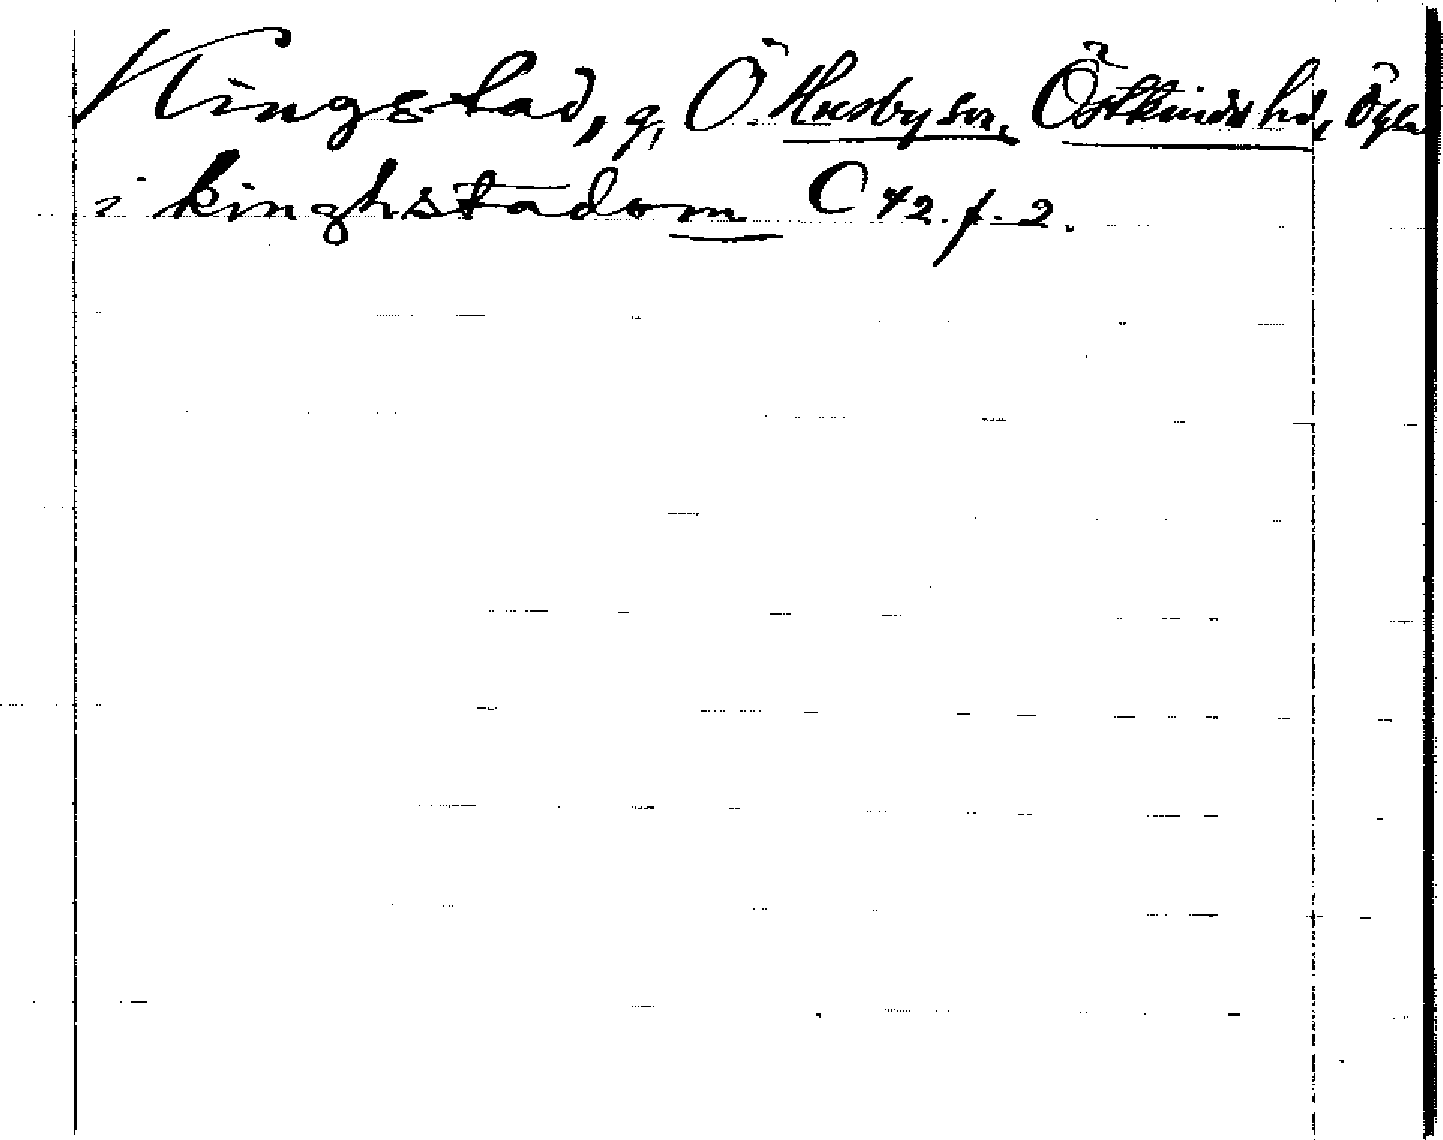 Kingstad, g, Ö. Husby sn, Östkinds hd, Ögld
i kinghstadom C 42. f. 2.